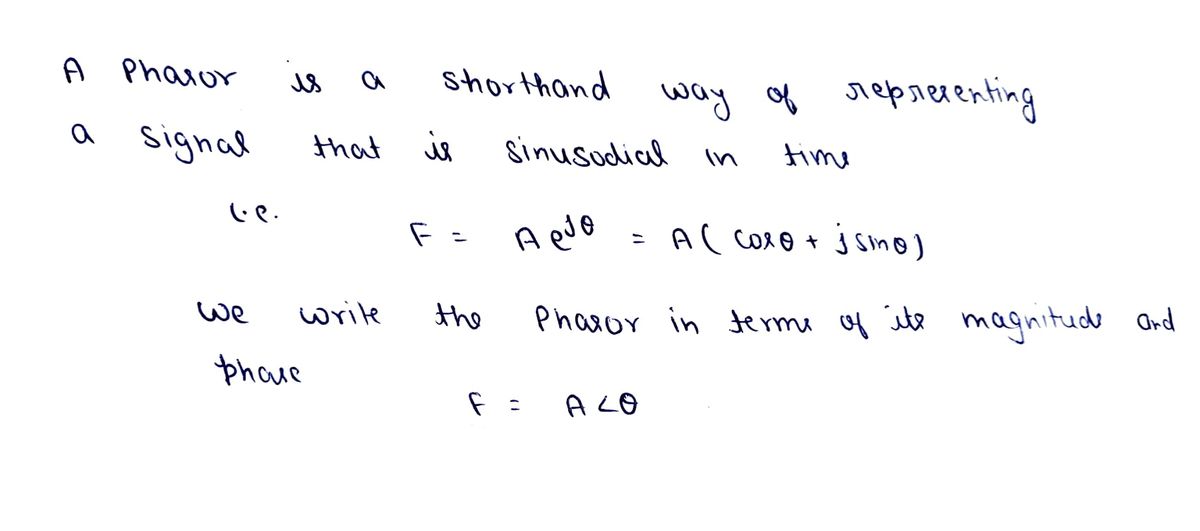 A Phasor is a shorthand way of representing
a signal that is sinusodical in time
i.e.
F = Ae^jθ = A( cosθ + j sinθ)
we write the Phasor in terms of its magnitude and
phase
F = A∠θ